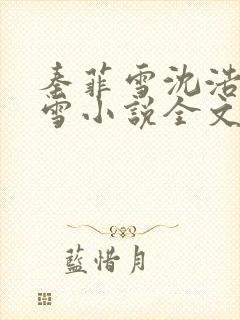 秦菲雪沈浩
雪小说全文
蓝惜月